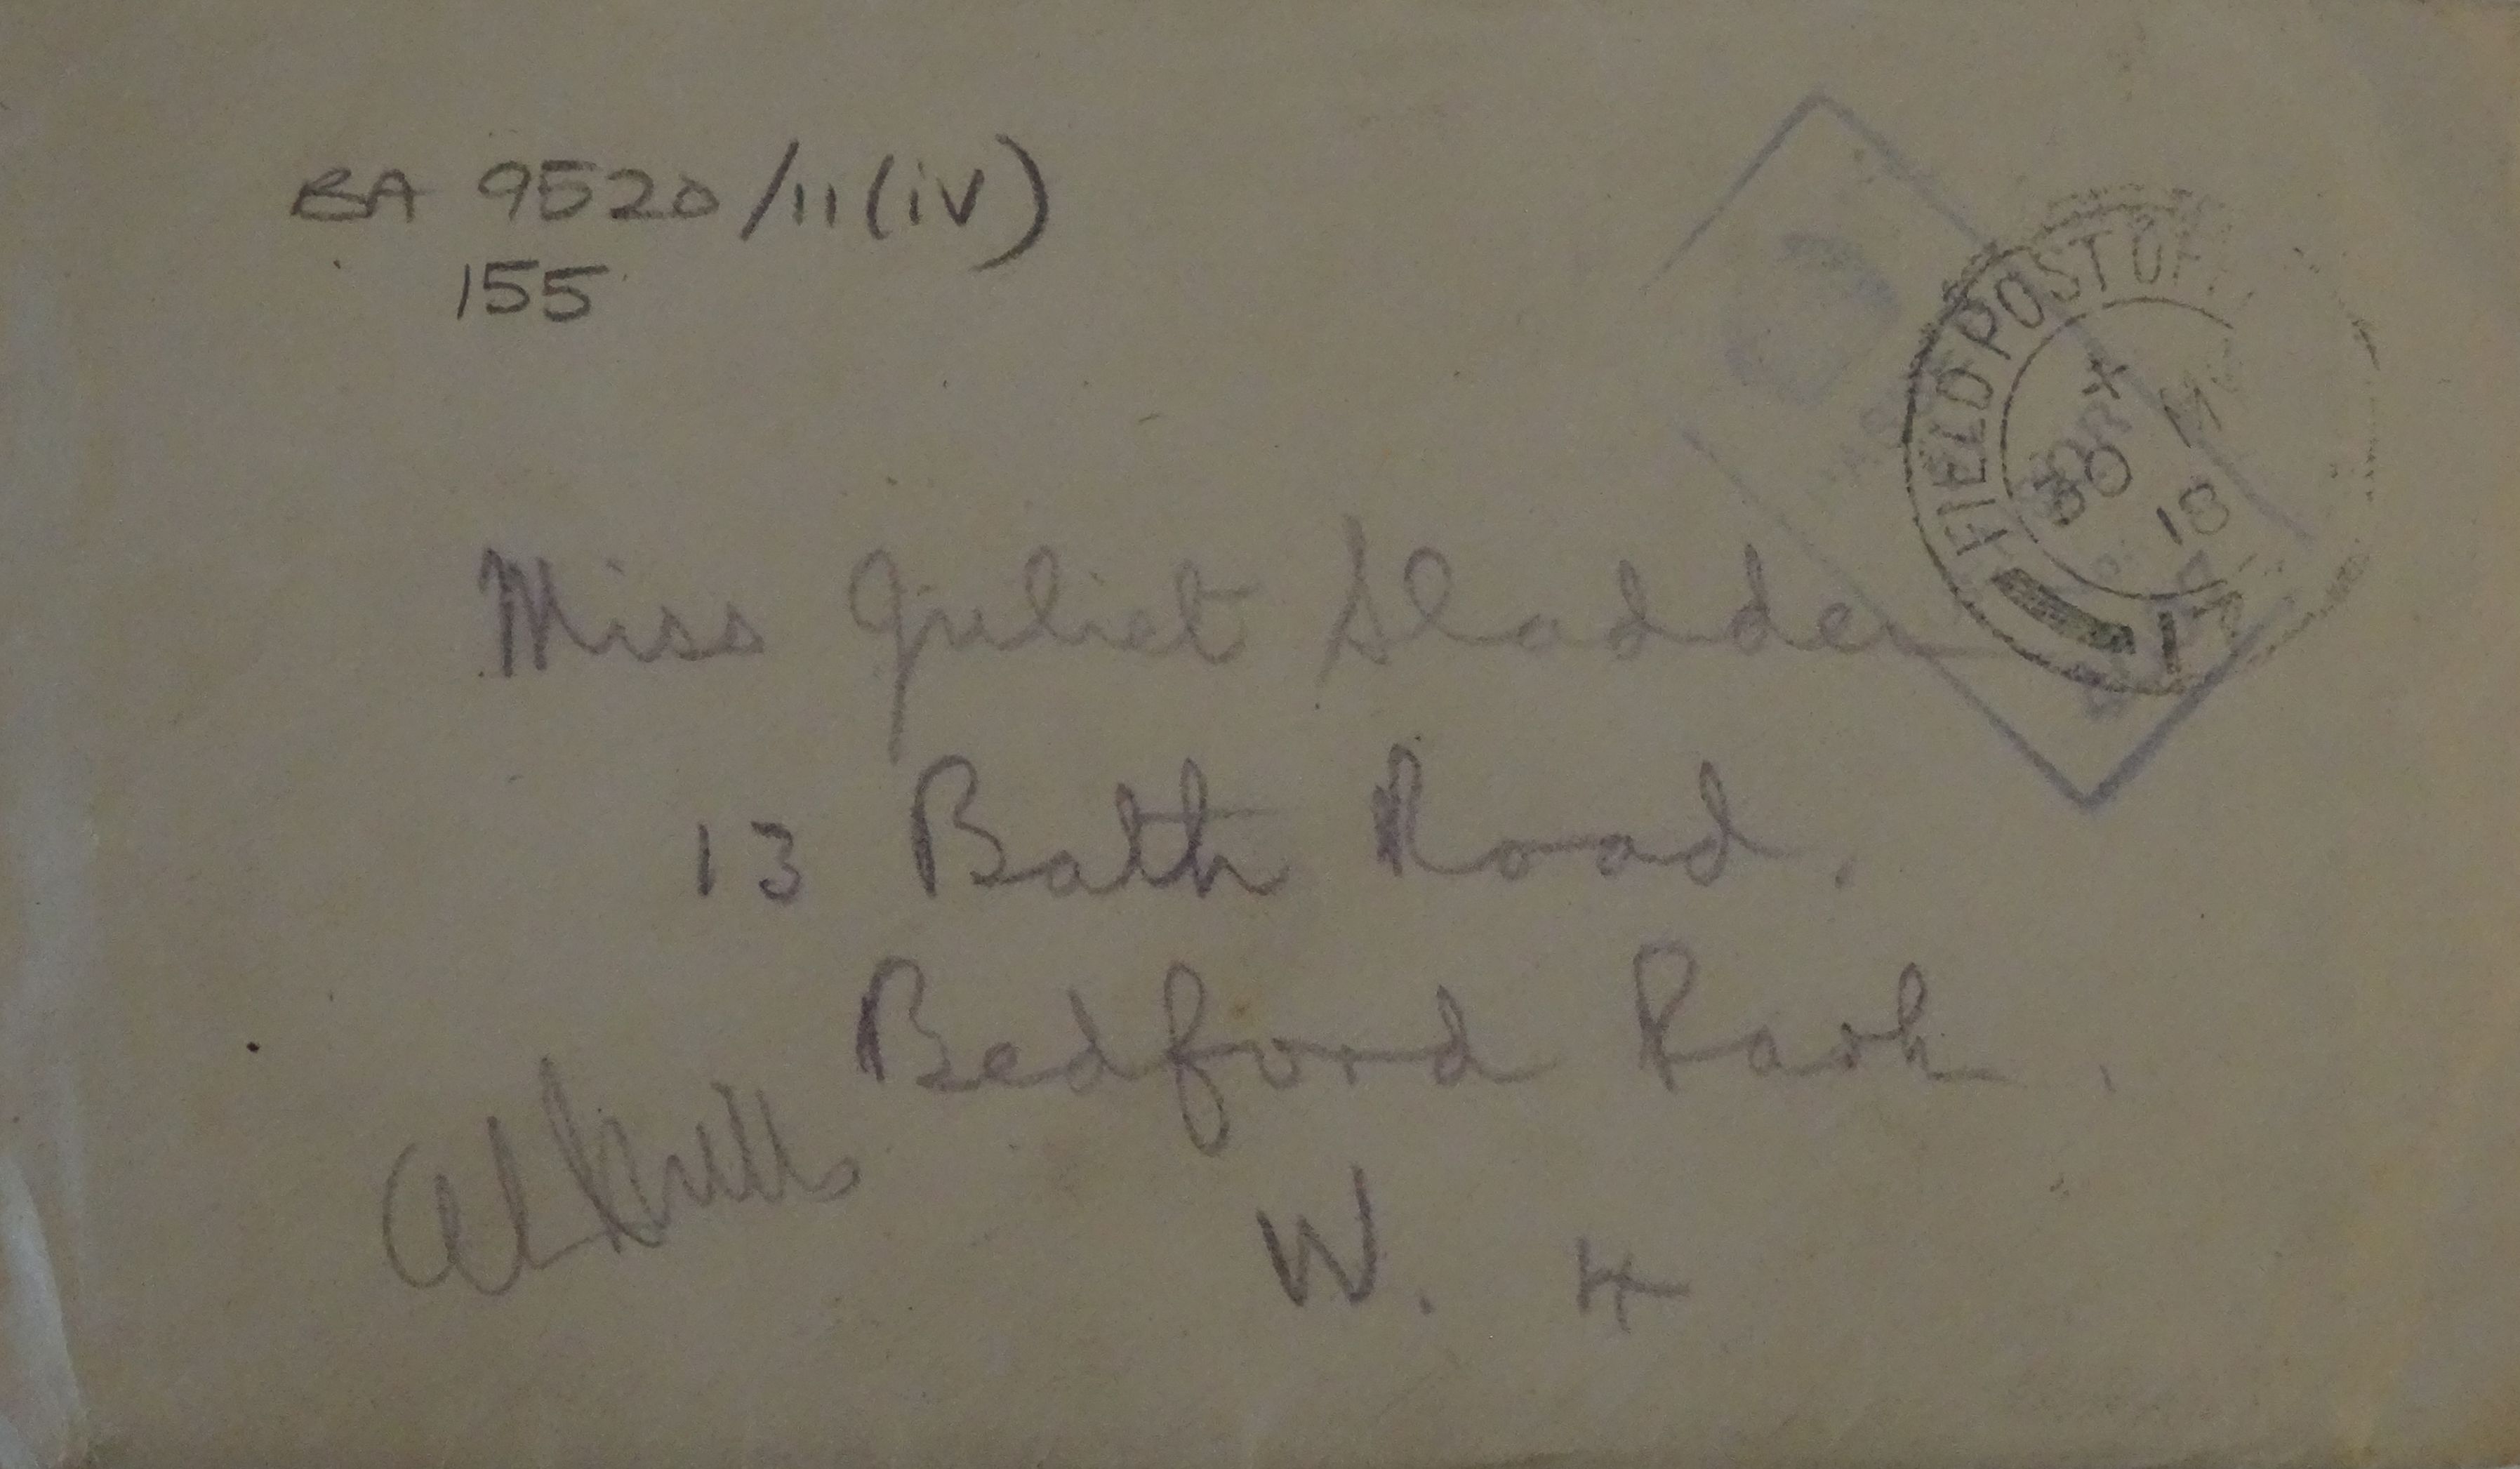 BA 9520/11(iv)
155
FIELD POST OF
X
30 M
18
Miss Juliet Sladden
13 Bath Road.
Bedford Park.
W. 4